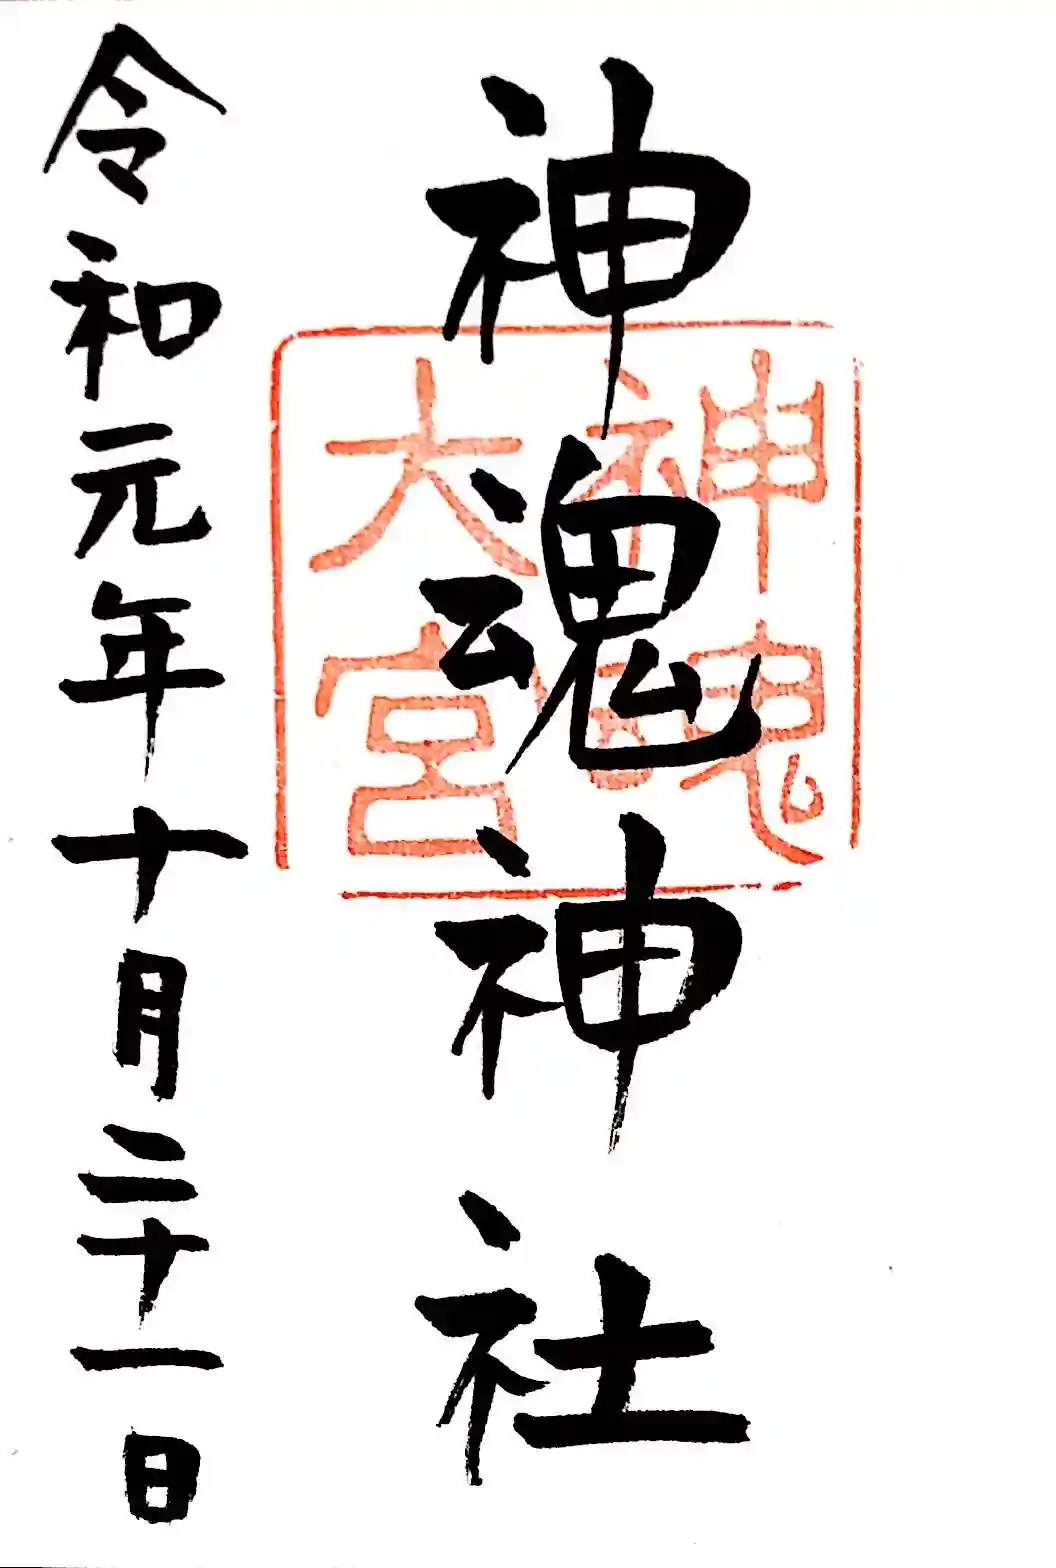 神魂神社
神魂
大宮
令和元年十月二十一日